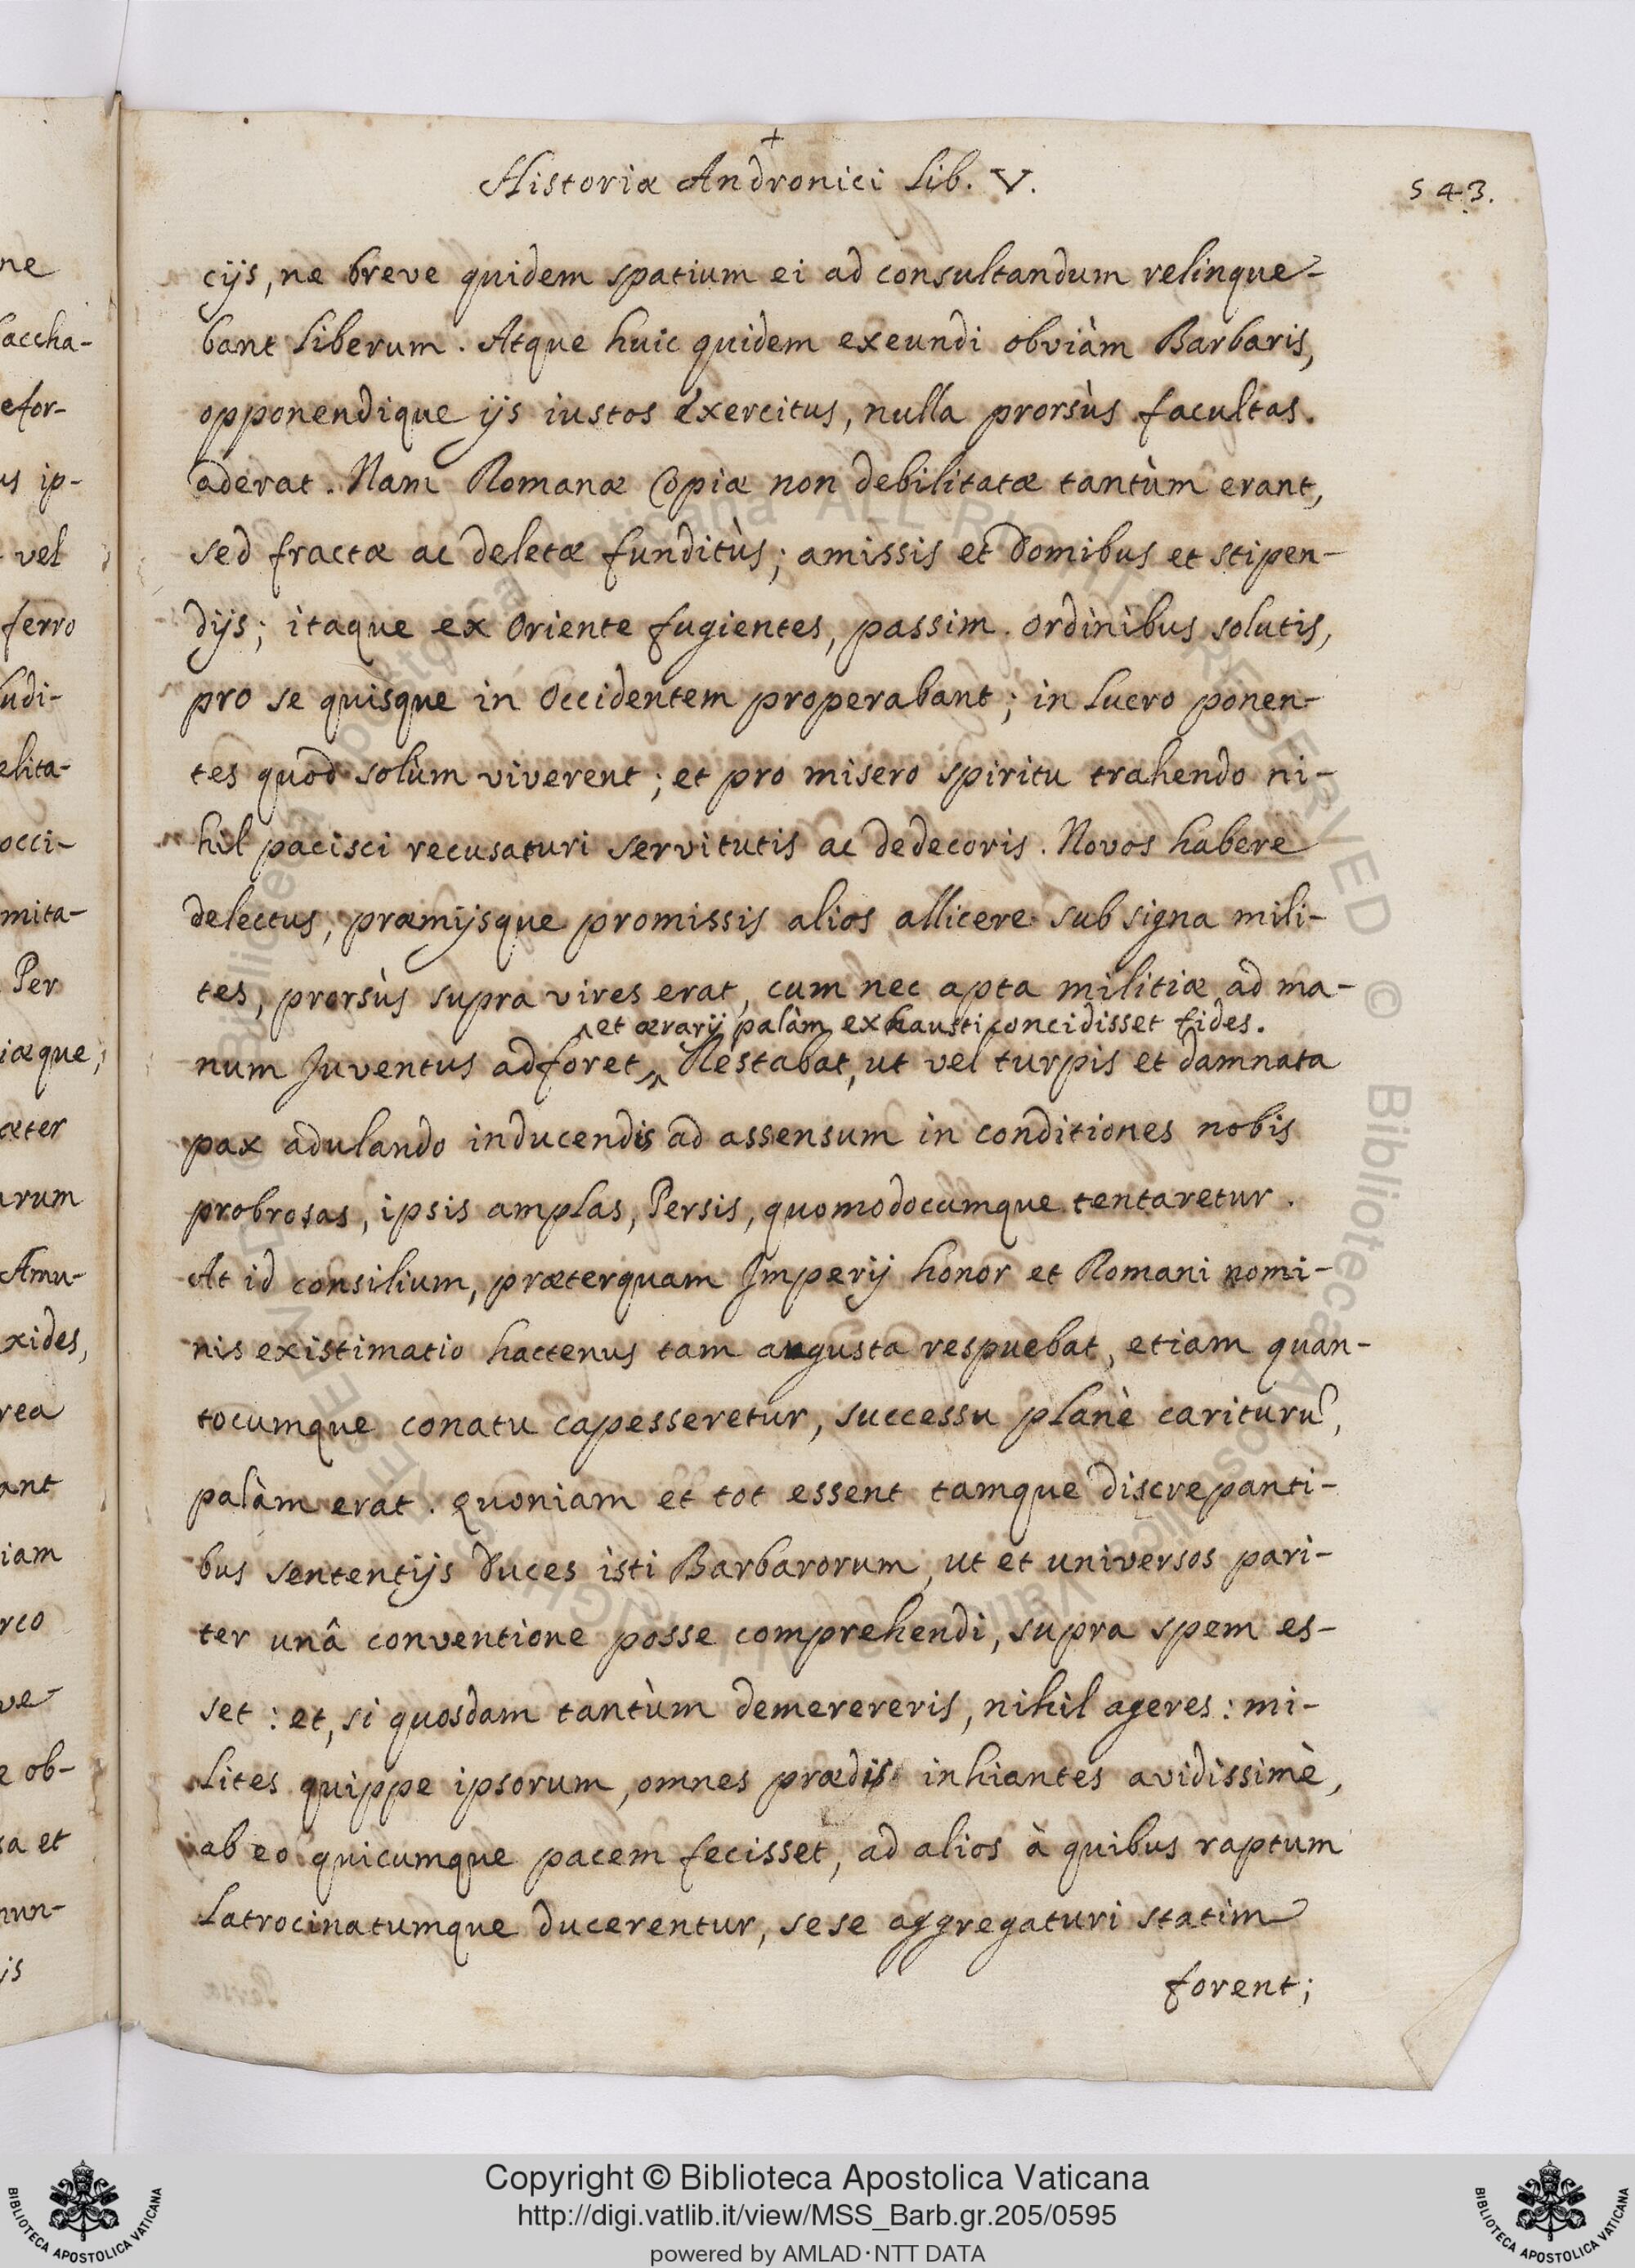 +
Historiæ Andronici Lib. V.
543.
cijs, ne breve quidem spatium ei ad consultandum relinque-
bant liberum. Atque huic quidem exeundi obviàm Barbaris,
opponendique ijs iustos exercitus, nulla prorsùs facultas.
aderat. Nam Romanæ Copiæ non debilitatæ tantùm erant,
sed fractæ ac deletæ funditùs; amissis et domibus et stipen-
dijs; itaque ex Oriente fugientes, passim ordinibus solutis,
pro se quisque in Occidentem properabant; in lucro ponen-
tes quod solùm viverent; et pro misero spiritu trahendo ni-
hil pacisci recusaturi servitutis ac dedecoris. Novos habere
delectus, præmijsque promissis alios allicere sub signa mili-
tes, prorsùs supra vires erat, cum nec apta militiæ ad ma-
^et ærarij palàm exhausti concidisset fides.
num Juventus adforet ^ Restabat, ut vel turpis et damnata
pax adulando inducendis ad assensum in conditiones nobis
probrosas, ipsis amplas, Persis, quomodocumque tentaretur.
At id consilium, præterquam Imperij honor et Romani nomi-
nis existimatio hactenus tam augusta respuebat, etiam quan-
tocumque conatu capesseretur, successu planè carituru̅,
palàm erat. Quoniam et tot essent tamque discrepanti-
bus sententijs Duces isti Barbarorum, ut et universos pari-
ter unâ conventione posse comprehendi, supra spem es-
set: et, si quosdam tantùm demerereris, nihil ageres: mi-
lites quippe ipsorum, omnes prædis inhiantes avidissimè,
ab eo quicumque pacem fecisset, ad alios à quibus raptum
latrocinatumque ducerentur, sese aggregaturi statim
forent;
ne
baccha-
efor-
us ip-
vel
ferro
ludi-
elita-
occi-
mita-
Per
iæque;
æter
arum
Amu-
xides,
rea
ant
iam
rco
ve-
e ob-
sa et
nun-
is
Copyright © Biblioteca Apostolica Vaticana
http://digi.vatlib.it/view/MSS_Barb.gr.205/0595
powered by AMLAD·NTT DATA
BIBLIOTECA APOSTOLICA VATICANA
BIBLIOTECA APOSTOLICA VATICANA